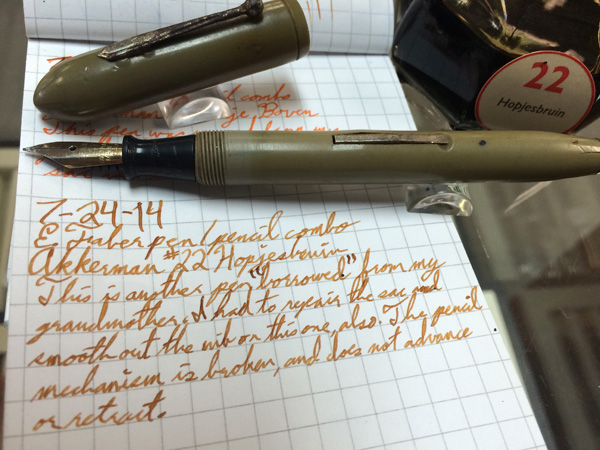 22
Hopjesbruin
combo
Boven
This pen was my
7-24-14
E Faber pen/pencil combo
Akkerman #22 Hopjesbruin
This is another pen "borrowed" from my
grandmother. I had to repair the sac and
smooth out the nib on this one, also. The pencil
mechanism is broken, and does not advance
or retrait.